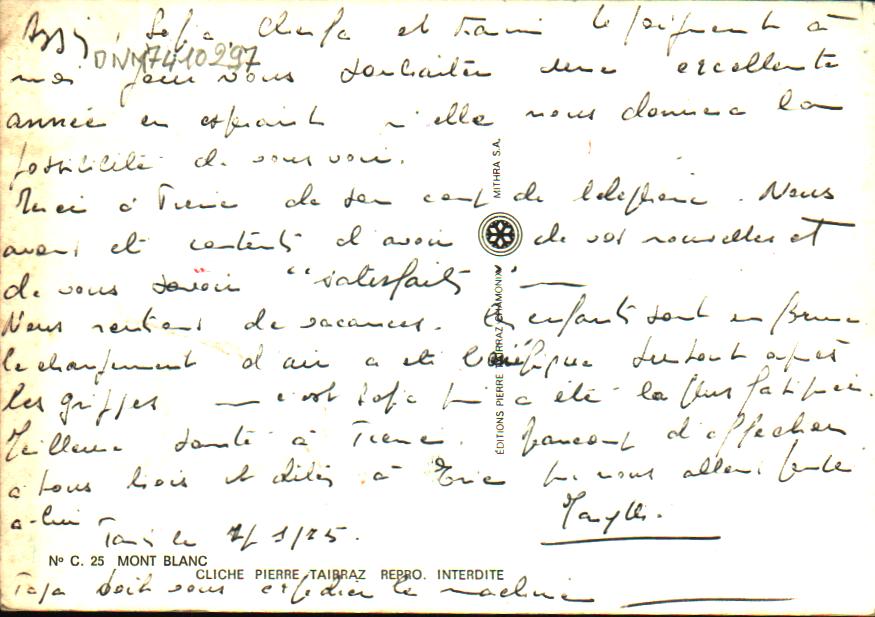 Sofia, Cherifa et Frani se joignent à
DNM7410297
moi pour vous souhaiter une excellente
année en espérant qu'elle nous donnera la
possibilité de vous voir.
Merci à Pierre de son coup de téléphone. Nous
avons été contents d'avoir de vos nouvelles et
de vous savoir "satisfaits" —
Nous rentrons de vacances. Les enfants sont en forme
le changement d'air a été bénéfique surtout après
les grippes — c'est Sofia qui a été la plus fatiguée.
Meilleure santé à Pierre. Beaucoup d'affection
à tous trois et dites à Eric que nous allons
à lui
Tunis le 7/1/75.
Nº C. 25 MONT BLANC
CLICHE PIERRE TAIRRAZ REPRO. INTERDITE
doit vous expédier la machine
ÉDITIONS PIERRE TAIRRAZ CHAMONIX
MITHRA S.A.